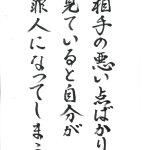 相手の悪い点ばかり
見ていると自分が
罪人になってしまう